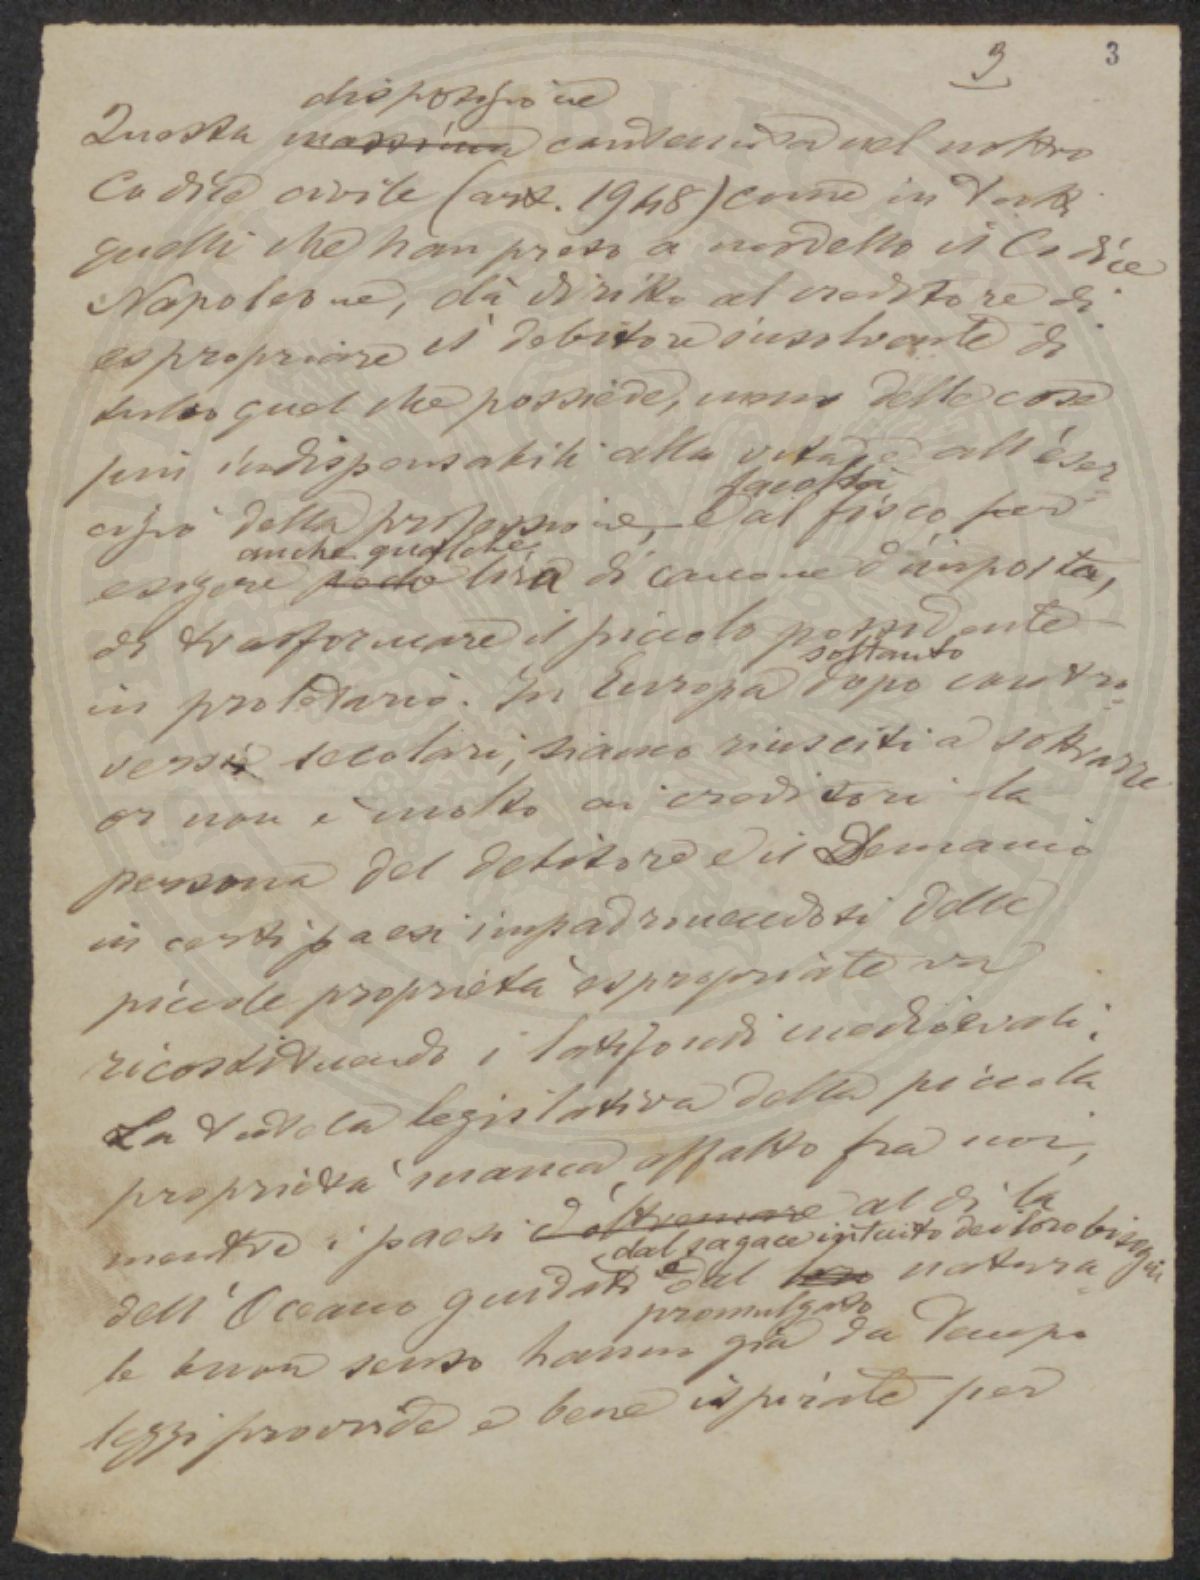 3 3
disposizione
Questa massima contenuta nel nostro
Codice civile (art. 1948) come in tutti
quelli che han preso a modello il Codice
Napoleone, dà diritto al creditore di
espropriare il debitore insolvente di
tutto quel che possiede, meno delle cose
più indispensabili alla vita e all'eser=
facoltà
cizio della professione, e al fisco per
anche qualche
esigere poche lira di canone d'imposta,
di trasformare il piccolo possidente
soltanto
in proletario. In Europa dopo contro=
versie secolari, siamo riusciti a sottrarre
or non è molto ai creditori la
persona del debitore e il Demanio
in certi paesi impadronendosi delle
piccole proprietà espropriate va
ricostituendo i latifondi medioevali.
La tutela legislativa della piccola
proprietà manca affatto fra noi,
mentre i paesi d'oltremare al di là
dal sagace intuito dei loro bisogni
dell'Oceano guidati e dal loro natura=
promulgato
le buon senso hanno già da tempo
leggi provvide e bene ispirate per